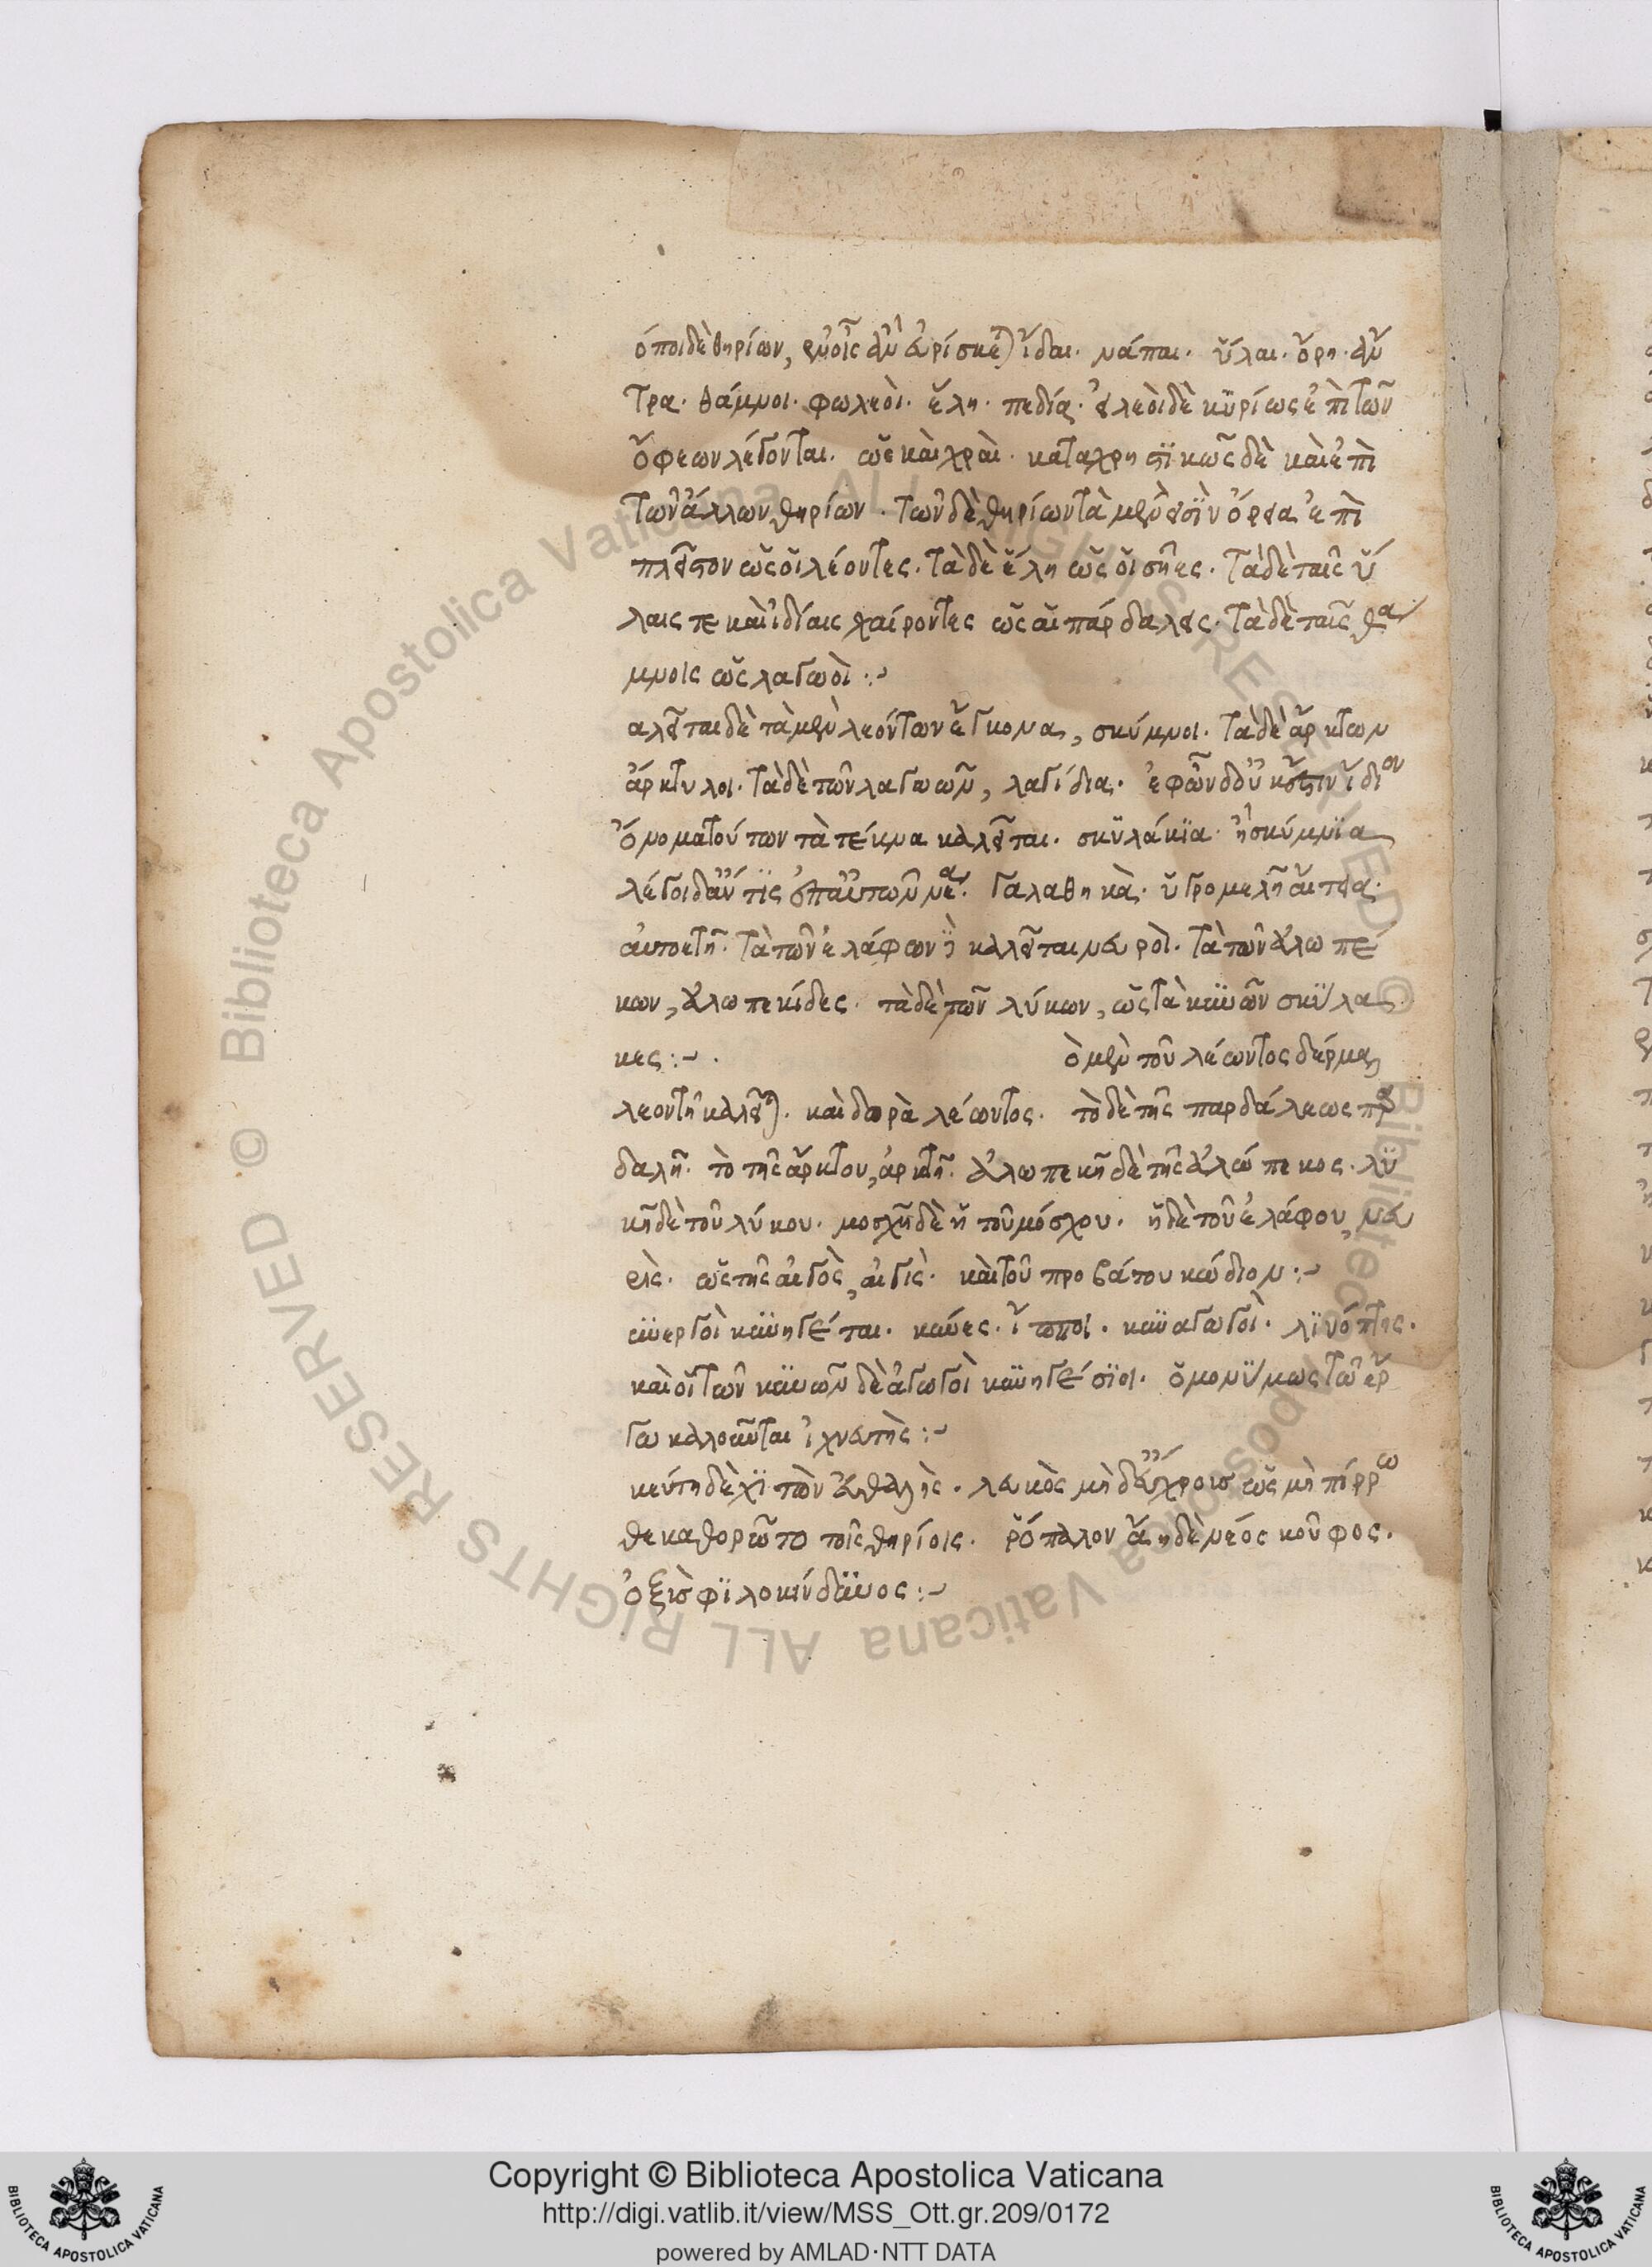 όποιδὲθηρίων, ἐνοῖς ἂν εὑρίσκεται ἴδαι· νάπαι· ὕλαι· ὄρη· ἄν
τρα· θάμνοι· φωλεοὶ· ἕλη· πεδία· εἰλεοὶδὲ κϋρίως ἐπὶτῶν
ὄφεωνλέγονται· ὡς καὶχραὶ· καταχρηστϊκῶςδὲ καὶἐπὶ
τῶνἄλλωνθηρίων· τῶνδὲθηρίωντὰμὲνεἰσϊν ὄρεια ἐπὶ
πλεῖστον ὡςοἱλέοντες· τὰδὲ ἕλη ὡς οἱ σῆες· τὰδὲταῖς ὕ
λαις τε καὶἰδίαις χαίροντες ὡς αἱπάρδαλεις· τὰδὲταῖς θα
μνοις ὡς λαγωοὶ :~
αλεῖταιδὲ τὰμὲνλεόντωνἔγκονα, σκύμνοι· τὰδὲἄρκτων
ἄρκτυλοι· τὰδὲτῶνλαγωῶν, λαγίδια· ἐφῶν δ' οὐκἔστιν ἴδιον
ὄνοματούτων τὰτέκνα καλεῖται· σκϋλάκϊα· ἢ σκύμνϊα
λέγοιδἄν τϊς ἐπαὐτῶννέα· γαλαθηκὰ· ὑγρομελῆ
αὐτοετῆ· τὰτῶνἐλάφων καλεῖται νεβροὶ· τὰτῶνἀλωπέ
κων, ἀλωπεκίδες· τὰδὲτῶν λύκων, ὡςτὰ κϋνῶν σκϋλα
κες :~ · ὁμὲντοῦ λέωντος δέρμα
λεοντῆκαλεῖται· καὶδορὰ λέωντος· τὸδὲτῆς παρδάλεως παρ
δαλῆ· τὸ τῆςἄρκτου, ἀρκτῆ· ἀλωπεκῆδὲτῆςἀλώπεκος· λϋ
κῆδὲτοῦλύκου· μοσχῆδὲ ἡ τοῦμόσχου· ἡδὲτοῦἐλάφου, νε
βρὶς· ὡςτῆςαἰγὸς, αἰγὶς· καὶτοῦ προβάτου κώδιον :~
σϋνεργοὶ κϋνηγέται· κύνες· ἵπποι· κϋναγωγοὶ· λϊνόπτης·
καὶοἱτῶν κϋνῶνδὲἀγωγοὶ κϋνηγέσϊοι· ὁμονϋμως τῶἔρ
γω καλοῦνται ἰχνευτὴς :~
λευκὸς μὴδεὔχροις ὡς μὴ πόρρω
θεκαθορῶτο τοῖςθηρίοις· ῥόπαλον νέος κοῦφος·
ὀξὺςφϊλοκίνδϋνος :~
Copyright © Biblioteca Apostolica Vaticana
http://digi.vatlib.it/view/MSS_Ott.gr.209/0172
powered by AMLAD·NTT DATA